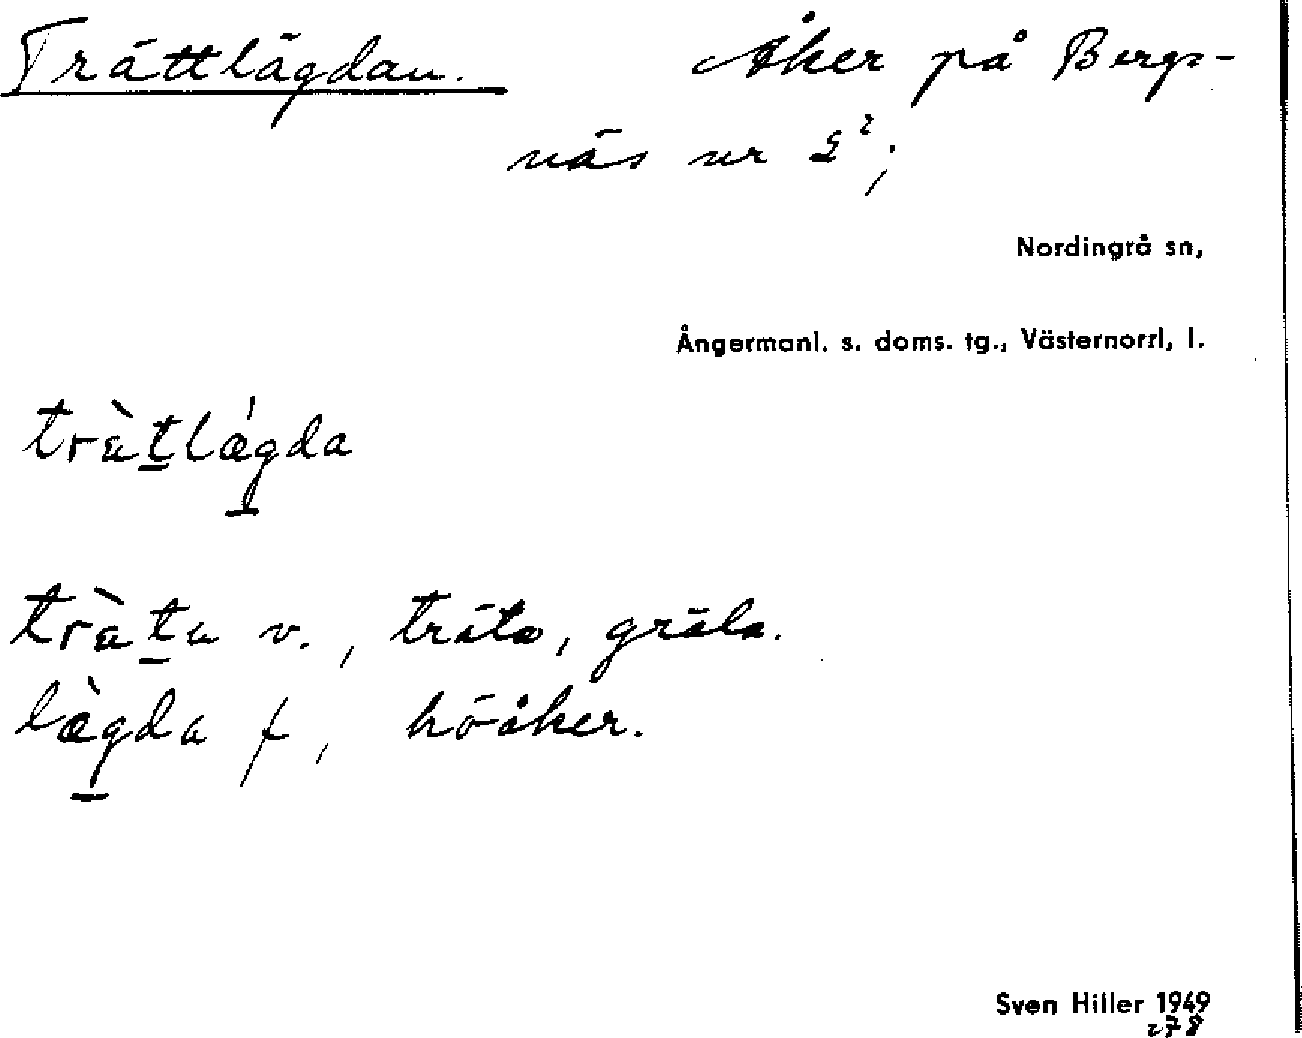 Trättlägdan. Åker på Bergs-
näs nr 2²;
Nordingrå sn,
Ångermanl. s. doms. tg., Västernorrl. l.
trὰtlǽgda
trὰta v., träta, gräla.
læ̀gda f, höåker.
Sven Hiller 1949
278